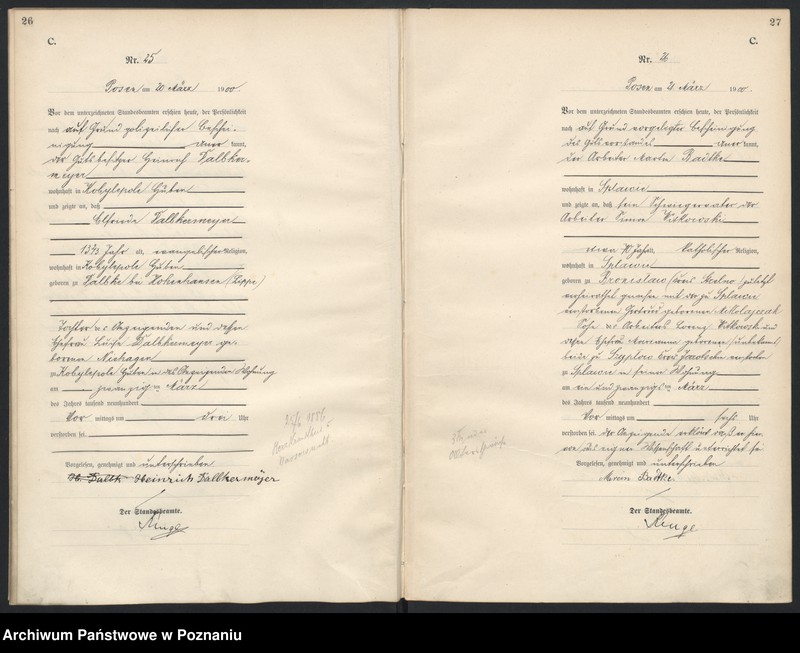 26
C.
Nr. 25
Posen am 20 März 1900.
Vor dem unterzeichneten Standesbeamten erschien heute, der Persönlichkeit
nach auf Grund polizeilicher Beschei-
nigung kannt,
der Gutsbesitzer Heinrich Falbker-
meyer
wohnhaft in Kobylepole Gulen
und zeigte an, daß
Elfriede Falkermeyer
13 Jahr alt, evangelischer Religion,
wohnhaft in Kobylepole
geboren zu bei Hohenhausen (Lippe)
Tochter des Anzeigenden und dessen
Ehefrau Luise ge-
borenen Niehagen
zu Kobylepole in des Anzeigenden Wohnung
am zwanzigsten März
des Jahres tausend neunhundert
Vor mittags um drei Uhr
verstorben sei.
Vorgelesen, genehmigt und unterschrieben
Heinrich Falkermeyer
Der Standesbeamte.
Kluge
27
C.
Nr. 26
Posen am 21 März 1900.
Vor dem unterzeichneten Standesbeamten erschien heute, der Persönlichkeit
nach auf Grund vorgelegter Bescheinigung
des Gutsvorstandes kannt,
der Arbeiter Martin Radtke
wohnhaft in Splawie
und zeigte an, daß sein Schwiegervater der
Arbeiter Simon Witkowski
etwa 70 Jahr alt, katholischer Religion,
wohnhaft in Splawie
geboren zu Bronislaw (Kreis Strelno) zuletzt
verheirathet gewesen mit der zu Splawie
verstorbenen geborenen Mikolajczak
Sohn des Arbeiters Lorenz Witkowski und
dessen Ehefrau Marianna geborene (unbekannt)
beide zu Kreis verstorben
zu Splawie in seiner Wohnung
am ein und zwanzigsten März
des Jahres tausend neunhundert
Vor mittags um sechs Uhr
verstorben sei. Der Anzeigende erklärte, daß er hier
von aus eigner Wissenschaft unterrichtet sei
Vorgelesen, genehmigt und unterschrieben
Radtke
Der Standesbeamte.
Kluge
Archiwum Państwowe w Poznaniu